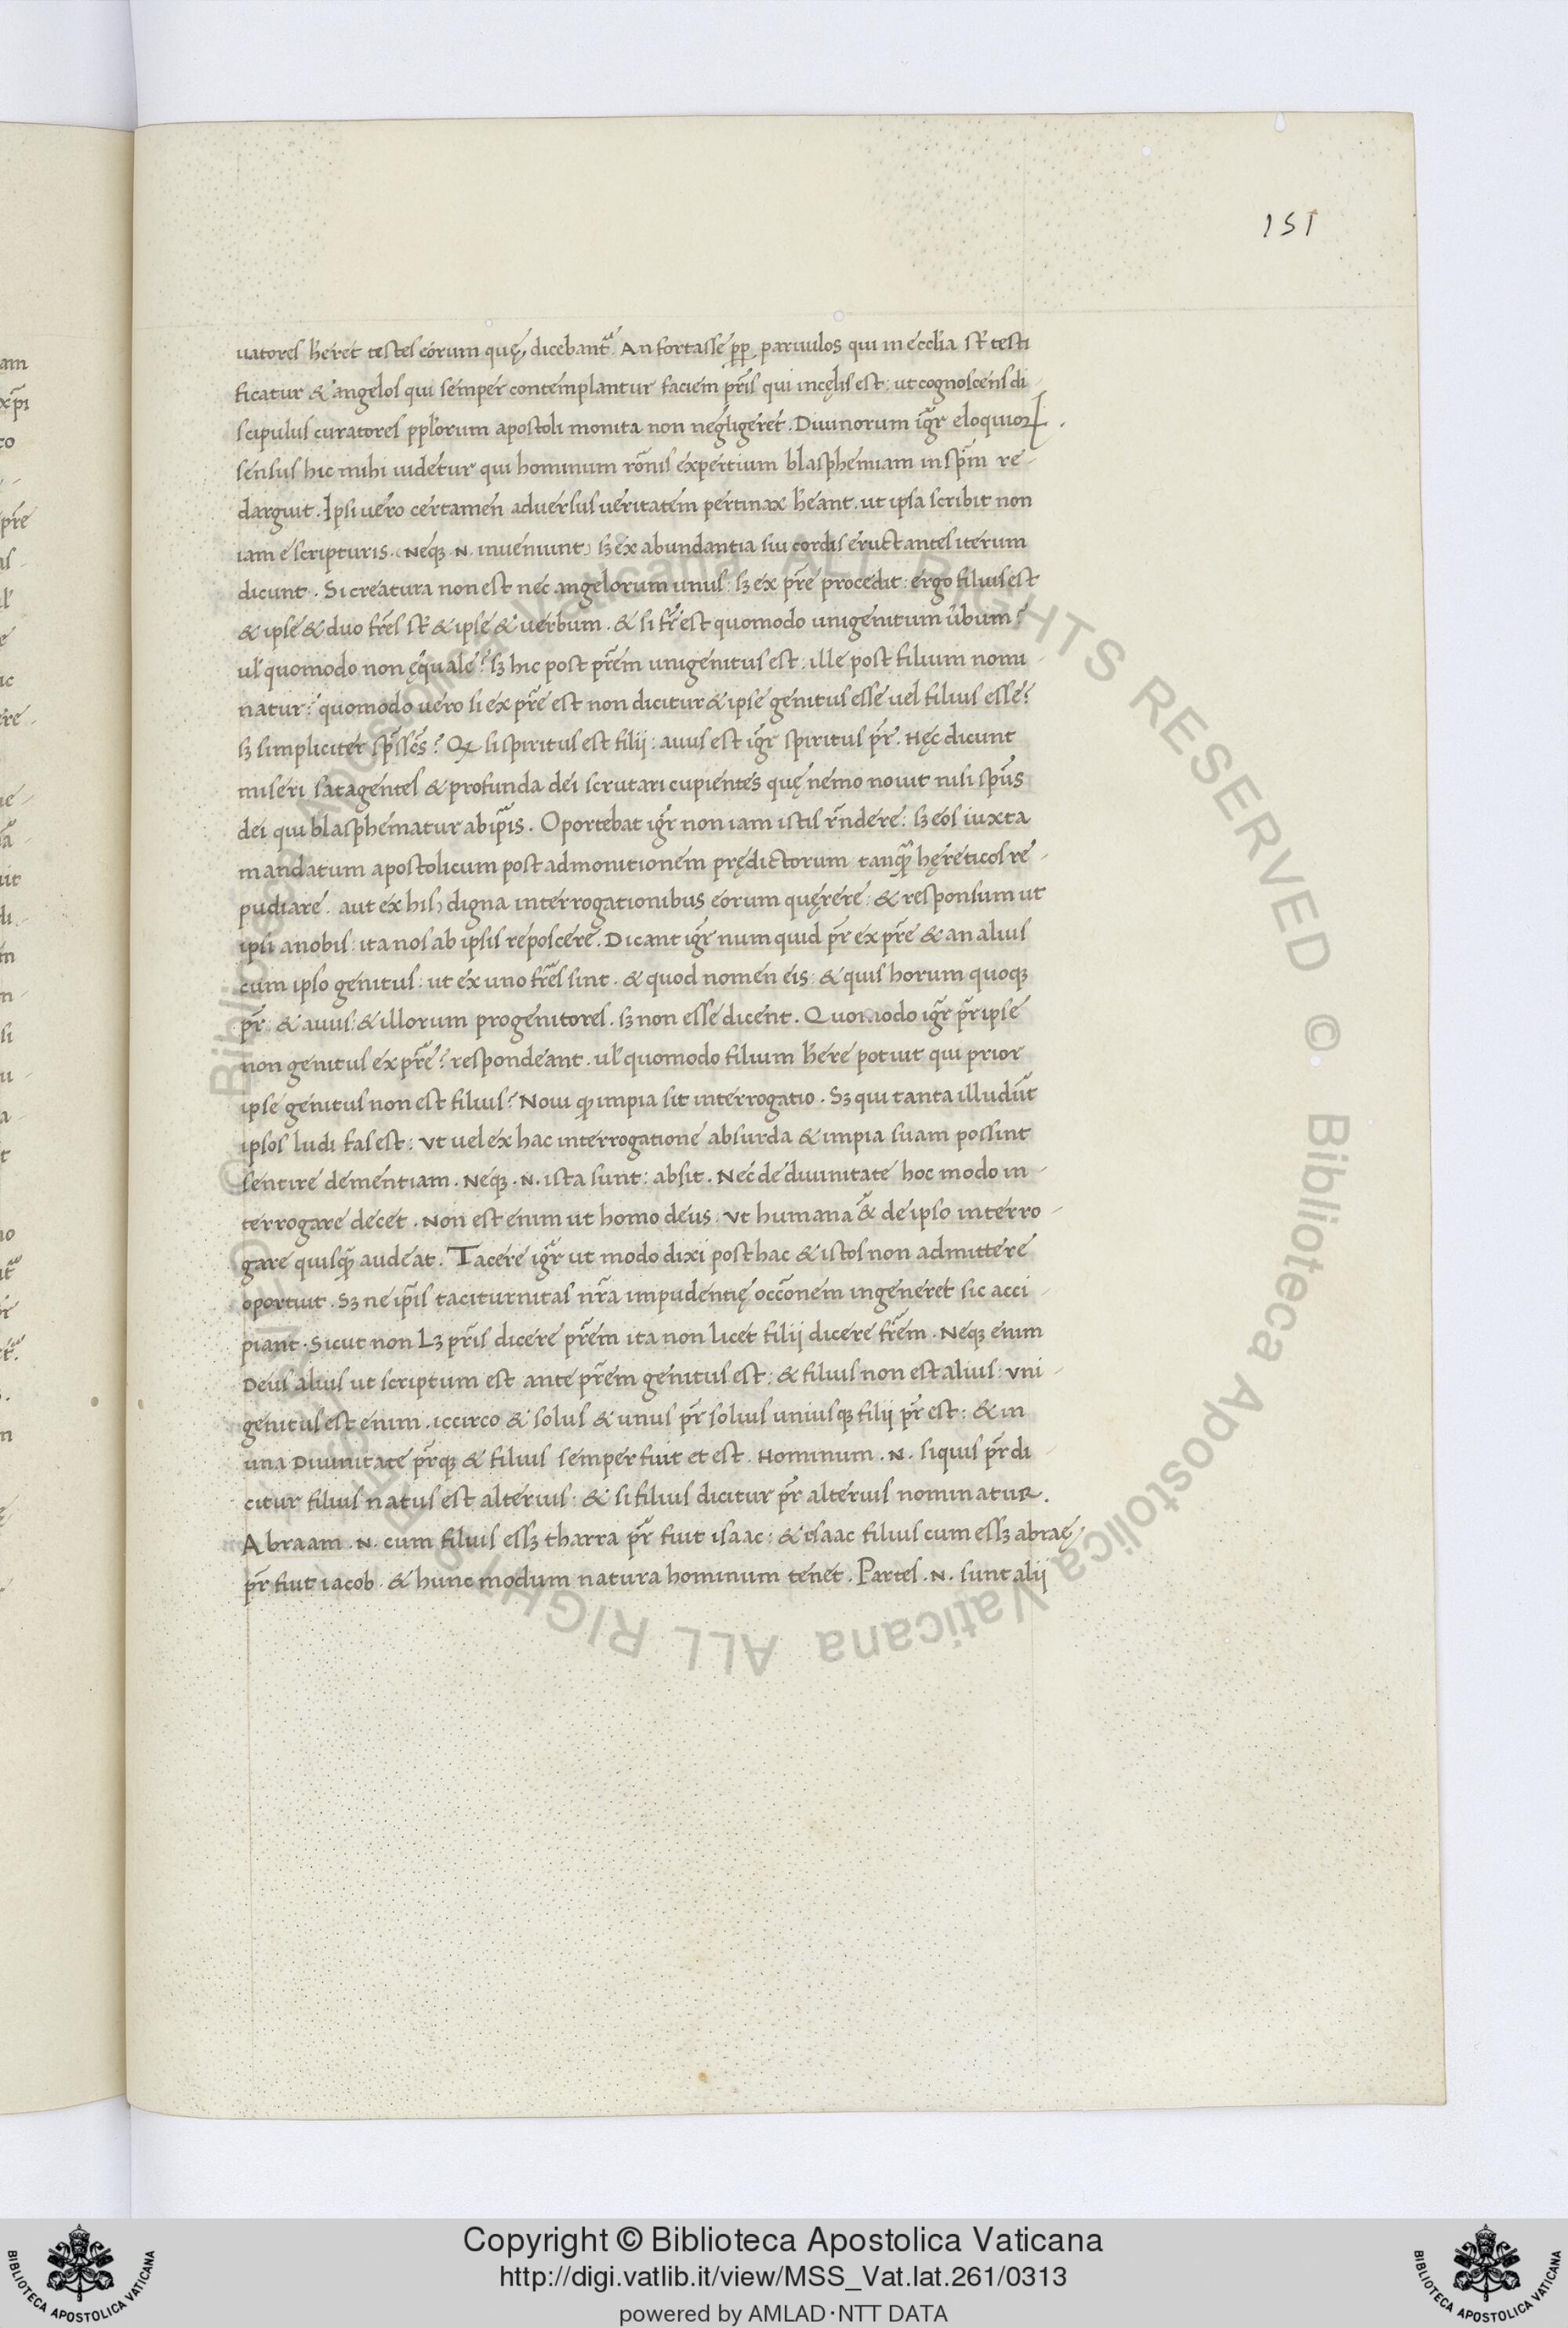 151
uatores h̄eret testes eorum quę dicebant᷑. An fortasse ꝓp̱ paruulos qui in eccl̄ia sr̄t testi
ficatur & angelos qui semper contemplantur faciem pr̄is qui in cęlis est: ut cognoscens di-
scipulus curatores pp̄lorum apostoli monita non negligeret. Diuinorum igr̄ eloquioꝝ.
sensus hic mihi uidetur qui hominum rōnis expertium blasphemiam in sp̄m re-
darguit. Ipsi uero certamen aduersus ueritatem pertinax h̄eant. ut ipsa scribit non
iam e scripturis. (Neqꝫ .N. inueniunt) sꝫ ex abundantia sui cordis eructantes iterum
dicunt. Si creatura non est nec angelorum unus: sꝫ ex pr̄e procedit: ergo filius est
& ipse & duo fr̄es sr̄t & ipse & uerbum. & si fr̄ est quomodo unigenitum ūbum?
ul̄ quomodo non ęquale? sꝫ hic post pr̄em unigenitus est: ille post filium nomi-
natur? quomodo uero si ex pr̄e est non dicitur & ipse genitus esse uel filius esse?
sꝫ simpliciter sp̄s sc̄s? Qꝫ si spiritus est filij: auus est igr̄ spiritus pr̄. Hęc dicunt
miseri satagentes & profunda dei scrutari cupientes quę nemo nouit nisi sp̄us
dei qui blasphematur ab ip̄is. Oportebat igr̄ non iam istis rn̄dere: sꝫ eos iuxta
mandatum apostolicum post admonitionem prędictorum tanqꝫ hęreticos re-
pudiare. aut ex his digna interrogationibus eorum quęrere: & responsum ut
ipsi a nobis: ita nos ab ipsis reposcere. Dicant igr̄ num quid pr̄ ex pr̄e & an alius
cum ipso genitus: ut ex uno fr̄es sint. & quod nomen eis: & quis horum quoqꝫ
pr̄. & auus: & illorum progenitores. sꝫ non esse dicent. Quomodo igr̄ pr̄ ipse
non genitus ex pr̄e? respondeant. ul̄ quomodo filium h̄ere potuit qui prior
ipse genitus non est filius? Noui ꝙ impia sit interrogatio. Sꝫ qui tanta illudūt
ipsos ludi fas est: Vt uel ex hac interrogatione absurda & impia suam possint
sentire dementiam. Neqꝫ .N. ista sunt: absit. Nec de diuinitate hoc modo in-
terrogare decet. Non est enim ut homo deus. Vt humana & de ipso interro-
gare quisꝙ audeat. Tacere igr̄ ut modo dixi post hac & istos non admittere
oportuit. Sꝫ ne ip̄is taciturnitas nr̄a impudentię occōnem ingeneret sic acci-
piant. Sicut non Lꝫ pr̄is dicere pr̄em ita non licet filij dicere fr̄em. Neqꝫ enim
Deus alius ut scriptum est ante pr̄em genitus est: & filius non est alius: Vni-
genitus est enim. iccirco & solus & unus pr̄ solius uniusqꝫ filij pr̄ est: & in
una Diuinitate pr̄qꝫ & filius semper fuit et est. Hominum .N. siquis pr̄ di-
citur filius natus est alterius: & si filius dicitur pr̄ alterius nominatur.
Abraam .N. cum filius essꝫ tharra pr̄ fuit isaac: & isaac filius cum essꝫ abraę
pr̄ fuit iacob. & hunc modum natura hominum tenet. Partes .N. sunt alij
Copyright © Biblioteca Apostolica Vaticana
http://digi.vatlib.it/view/MSS_Vat.lat.261/0313
powered by AMLAD·NTT DATA
BIBLIOTECA APOSTOLICA VATICANA
BIBLIOTECA APOSTOLICA VATICANA
© Biblioteca Apostolica Vaticana ALL RIGHTS RESERVED
© Biblioteca Apostolica Vaticana ALL RIGHTS